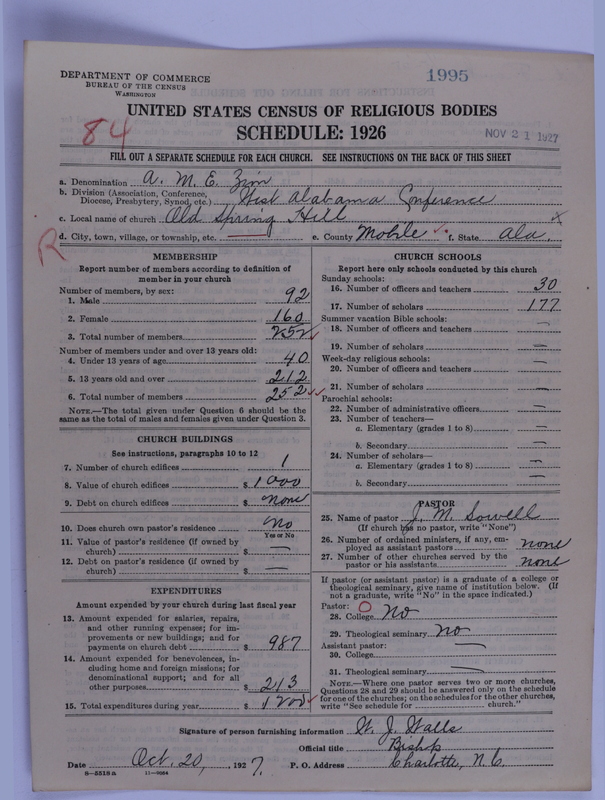 1995
DEPARTMENT OF COMMERCE
BUREAU OF THE CENSUS
WASHINGTON
UNITED STATES CENSUS OF RELIGIOUS BODIES
SCHEDULE: 1926
84
NOV 21 1927
FILL OUT A SEPARATE SCHEDULE FOR EACH CHURCH. SEE INSTRUCTIONS ON THE BACK OF THIS SHEET
a. Denomination A. M. E. Zion
b. Division (Association, Conference, Diocese, Presbytery, Synod, etc.) West Alabama Conference
c. Local name of church Old Spring Hill x
R
d. City, town, village, or township, etc. — e. County Mobile ✓ f. State Ala.
MEMBERSHIP
Report number of members according to definition of
member in your church
Number of members, by sex:
1. Male 92
2. Female 160
3. Total number of members 252 ✓
Number of members under and over 13 years old:
4. Under 13 years of age 40
5. 13 years old and over 212
6. Total number of members 252 ✓✓
NOTE.—The total given under Question 6 should be the
same as the total of males and females given under Question 3.
CHURCH BUILDINGS
See instructions, paragraphs 10 to 12
7. Number of church edifices 1
8. Value of church edifices $ 1000
9. Debt on church edifices $ none
10. Does church own pastor's residence No
Yes or No
11. Value of pastor's residence (if owned by
church) $ —
12. Debt on pastor's residence (if owned by
church) $ —
EXPENDITURES
Amount expended by your church during last fiscal year
13. Amount expended for salaries, repairs,
and other running expenses; for im-
provements or new buildings; and for
payments on church debt $ 987
14. Amount expended for benevolences, in-
cluding home and foreign missions; for
denominational support; and for all
other purposes $ 213
15. Total expenditures during year $ 1200 ✓
CHURCH SCHOOLS
Report here only schools conducted by this church
Sunday schools:
16. Number of officers and teachers 30
17. Number of scholars 177
Summer vacation Bible schools:
18. Number of officers and teachers —
19. Number of scholars —
Week-day religious schools:
20. Number of officers and teachers —
21. Number of scholars —
Parochial schools:
22. Number of administrative officers —
23. Number of teachers—
a. Elementary (grades 1 to 8) —
b. Secondary —
24. Number of scholars—
a. Elementary (grades 1 to 8) —
b. Secondary —
PASTOR
25. Name of pastor J. M. Sowell
(If church has no pastor, write "None")
26. Number of ordained ministers, if any, em-
ployed as assistant pastors none
27. Number of other churches served by the
pastor or his assistants none
If pastor (or assistant pastor) is a graduate of a college or
theological seminary, give name of institution below. (If
not a graduate, write "No" in the space indicated.)
Pastor: O
28. College No
29. Theological seminary No
Assistant pastor:
30. College —
31. Theological seminary —
NOTE.—Where one pastor serves two or more churches,
Questions 28 and 29 should be answered only on the schedule
for one of the churches; on the schedules for the other churches,
write "See schedule for church."
Signature of person furnishing information W. J. Walls
Official title Bishop
Date Oct. 20, 1927. P. O. Address Charlotte, N.C.
8-5518a 11-9064